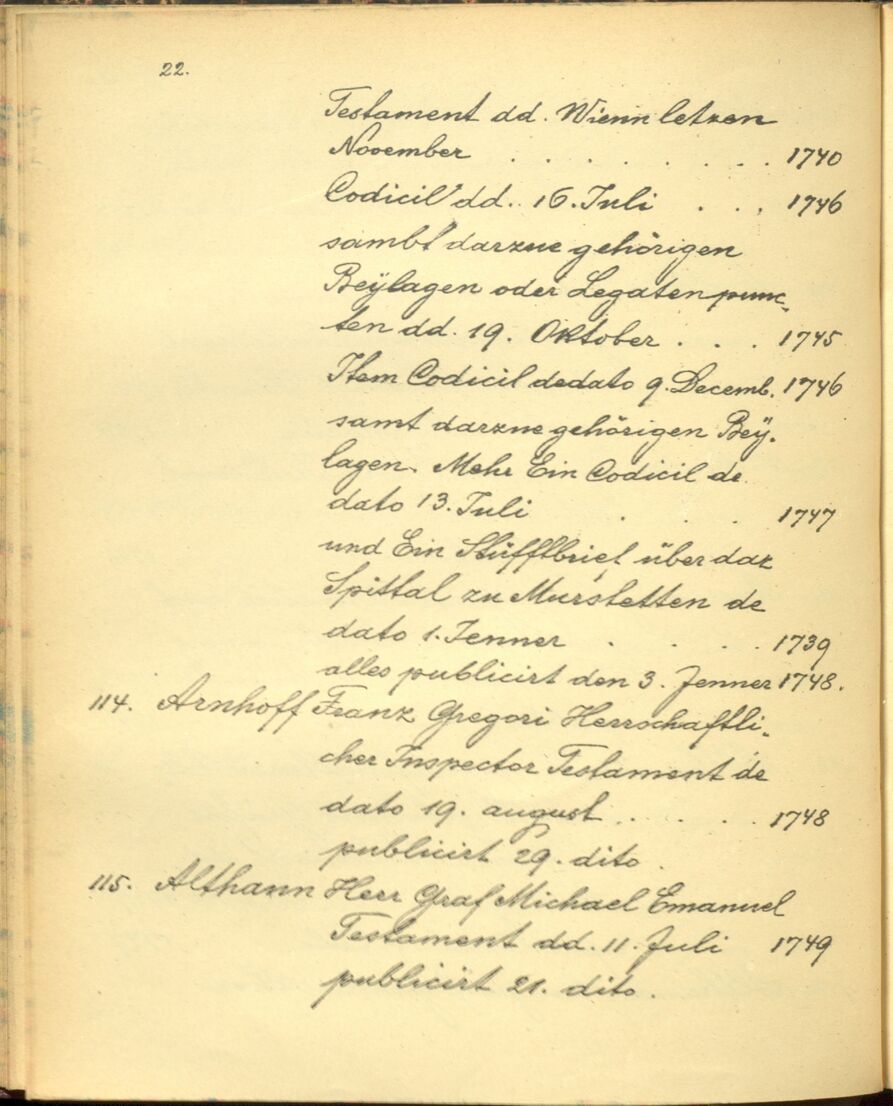 22.
Testament dd. Wienn letzen
November . . . . . . . . 1740
Codicil dd. 16. Juli . . . 1746
sambt darzue gehörigen
Beÿlagen oder Legatenpunc-
ten dd. 19. Oktober . . . 1745
Item Codicil dedato 9. Decemb. 1746
samt darzue gehörigen Beÿ-
lagen. Mehr Ein Codicil de
dato 13. Juli . . . 1747
und Ein Stüfftbrief über daz
Spittal zu Murstetten de
dato 1. Jenner . . . . 1739
alles publicirt den 3. Jenner 1748.
114. Arnhoff Franz Gregori Herrschaftli-
cher Inspector Testament de
dato 19. august . . . . . 1748
publicirt 29. dito.
115. Althann Herr Graf Michael Emanuel
Testament dd. 11. Juli 1749
publicirt 21. dito.